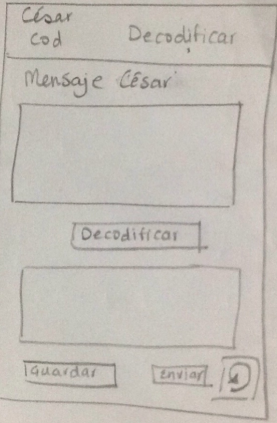 César
Cod
Decodificar
Mensaje César
Decodificar
Guardar
Enviar